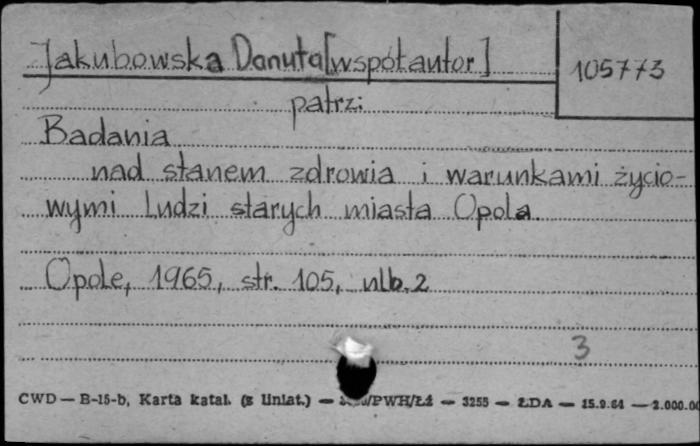 Jakubowska Danuta [współautor]
105773
patrz:
Badania
nad stanem zdrowia i warunkami życio-
wymi ludzi starych miasta Opola.
Opole, 1965, str. 105, nlb. 2
3
CWD — B-15-b, Karta katal. (z liniat.) — /PWH/Łź — 3255 — ŁDA — 15.9.64 — 2.000.00